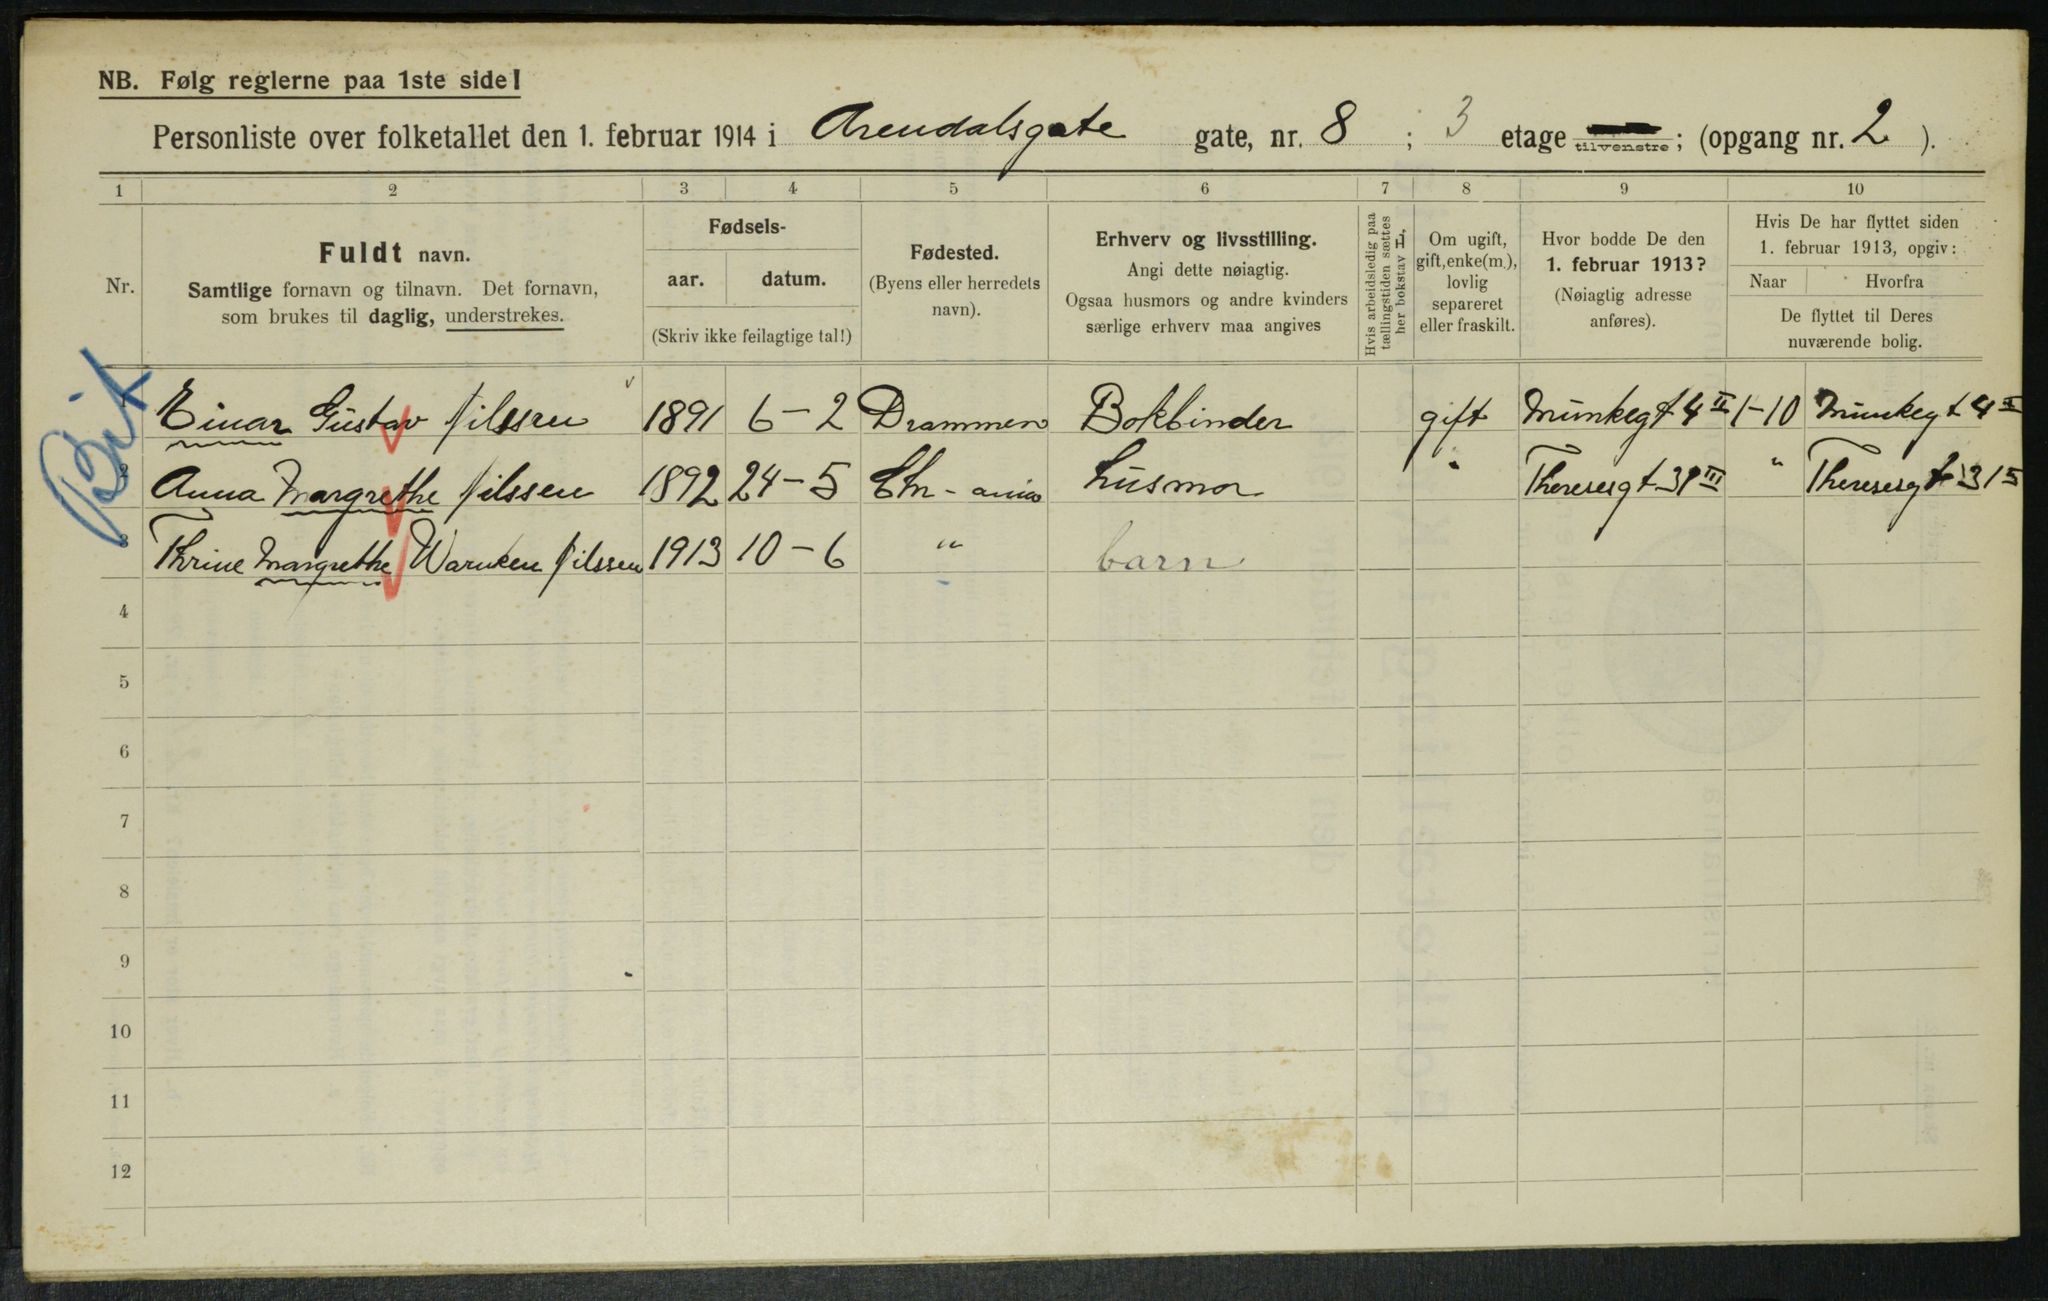 NB. Følg reglerne paa 1ste side!
Personliste over folketallet den 1. februar 1914 i Arendalsgate gate, nr. 8 ; 3 etage tilvenstre; (opgang nr. 2 ).
1 2 3 4 5 6 7 8 9 10
Nr.
Fuldt navn.
Samtlige fornavn og tilnavn. Det fornavn,
som brukes til daglig, understrekes.
Fødsels-
aar. datum.
(Skriv ikke feilagtige tal!)
Fødested.
(Byens eller herredets
navn).
Erhverv og livsstilling.
Angi dette nøiagtig.
Ogsaa husmors og andre kvinders
særlige erhverv maa angives
Hvis arbeidsledig paa
tællingstiden sættes
her bokstav L,
Om ugift,
gift, enke(m.),
lovlig
separeret
eller fraskilt.
Hvor bodde De den
1. februar 1913?
(Nøiagtig adresse
anføres).
Hvis De har flyttet siden
1. februar 1913, opgiv:
Naar Hvorfra
De flyttet til Deres
nuværende bolig.
1 Einar Gustav Nilssen 1891 6-2 Drammen Bokbinder gift Munkegt 4 II 1-10 Munkegt 4 II
2 Anna Margrethe Nilssen 1892 24-5 Chr-ania husmor " Theresesgt III " Theresesgt
3 Thrine Margrethe Warnken Nilssen 1913 10-6 " barn
4
5
6
7
8
9
10
11
12